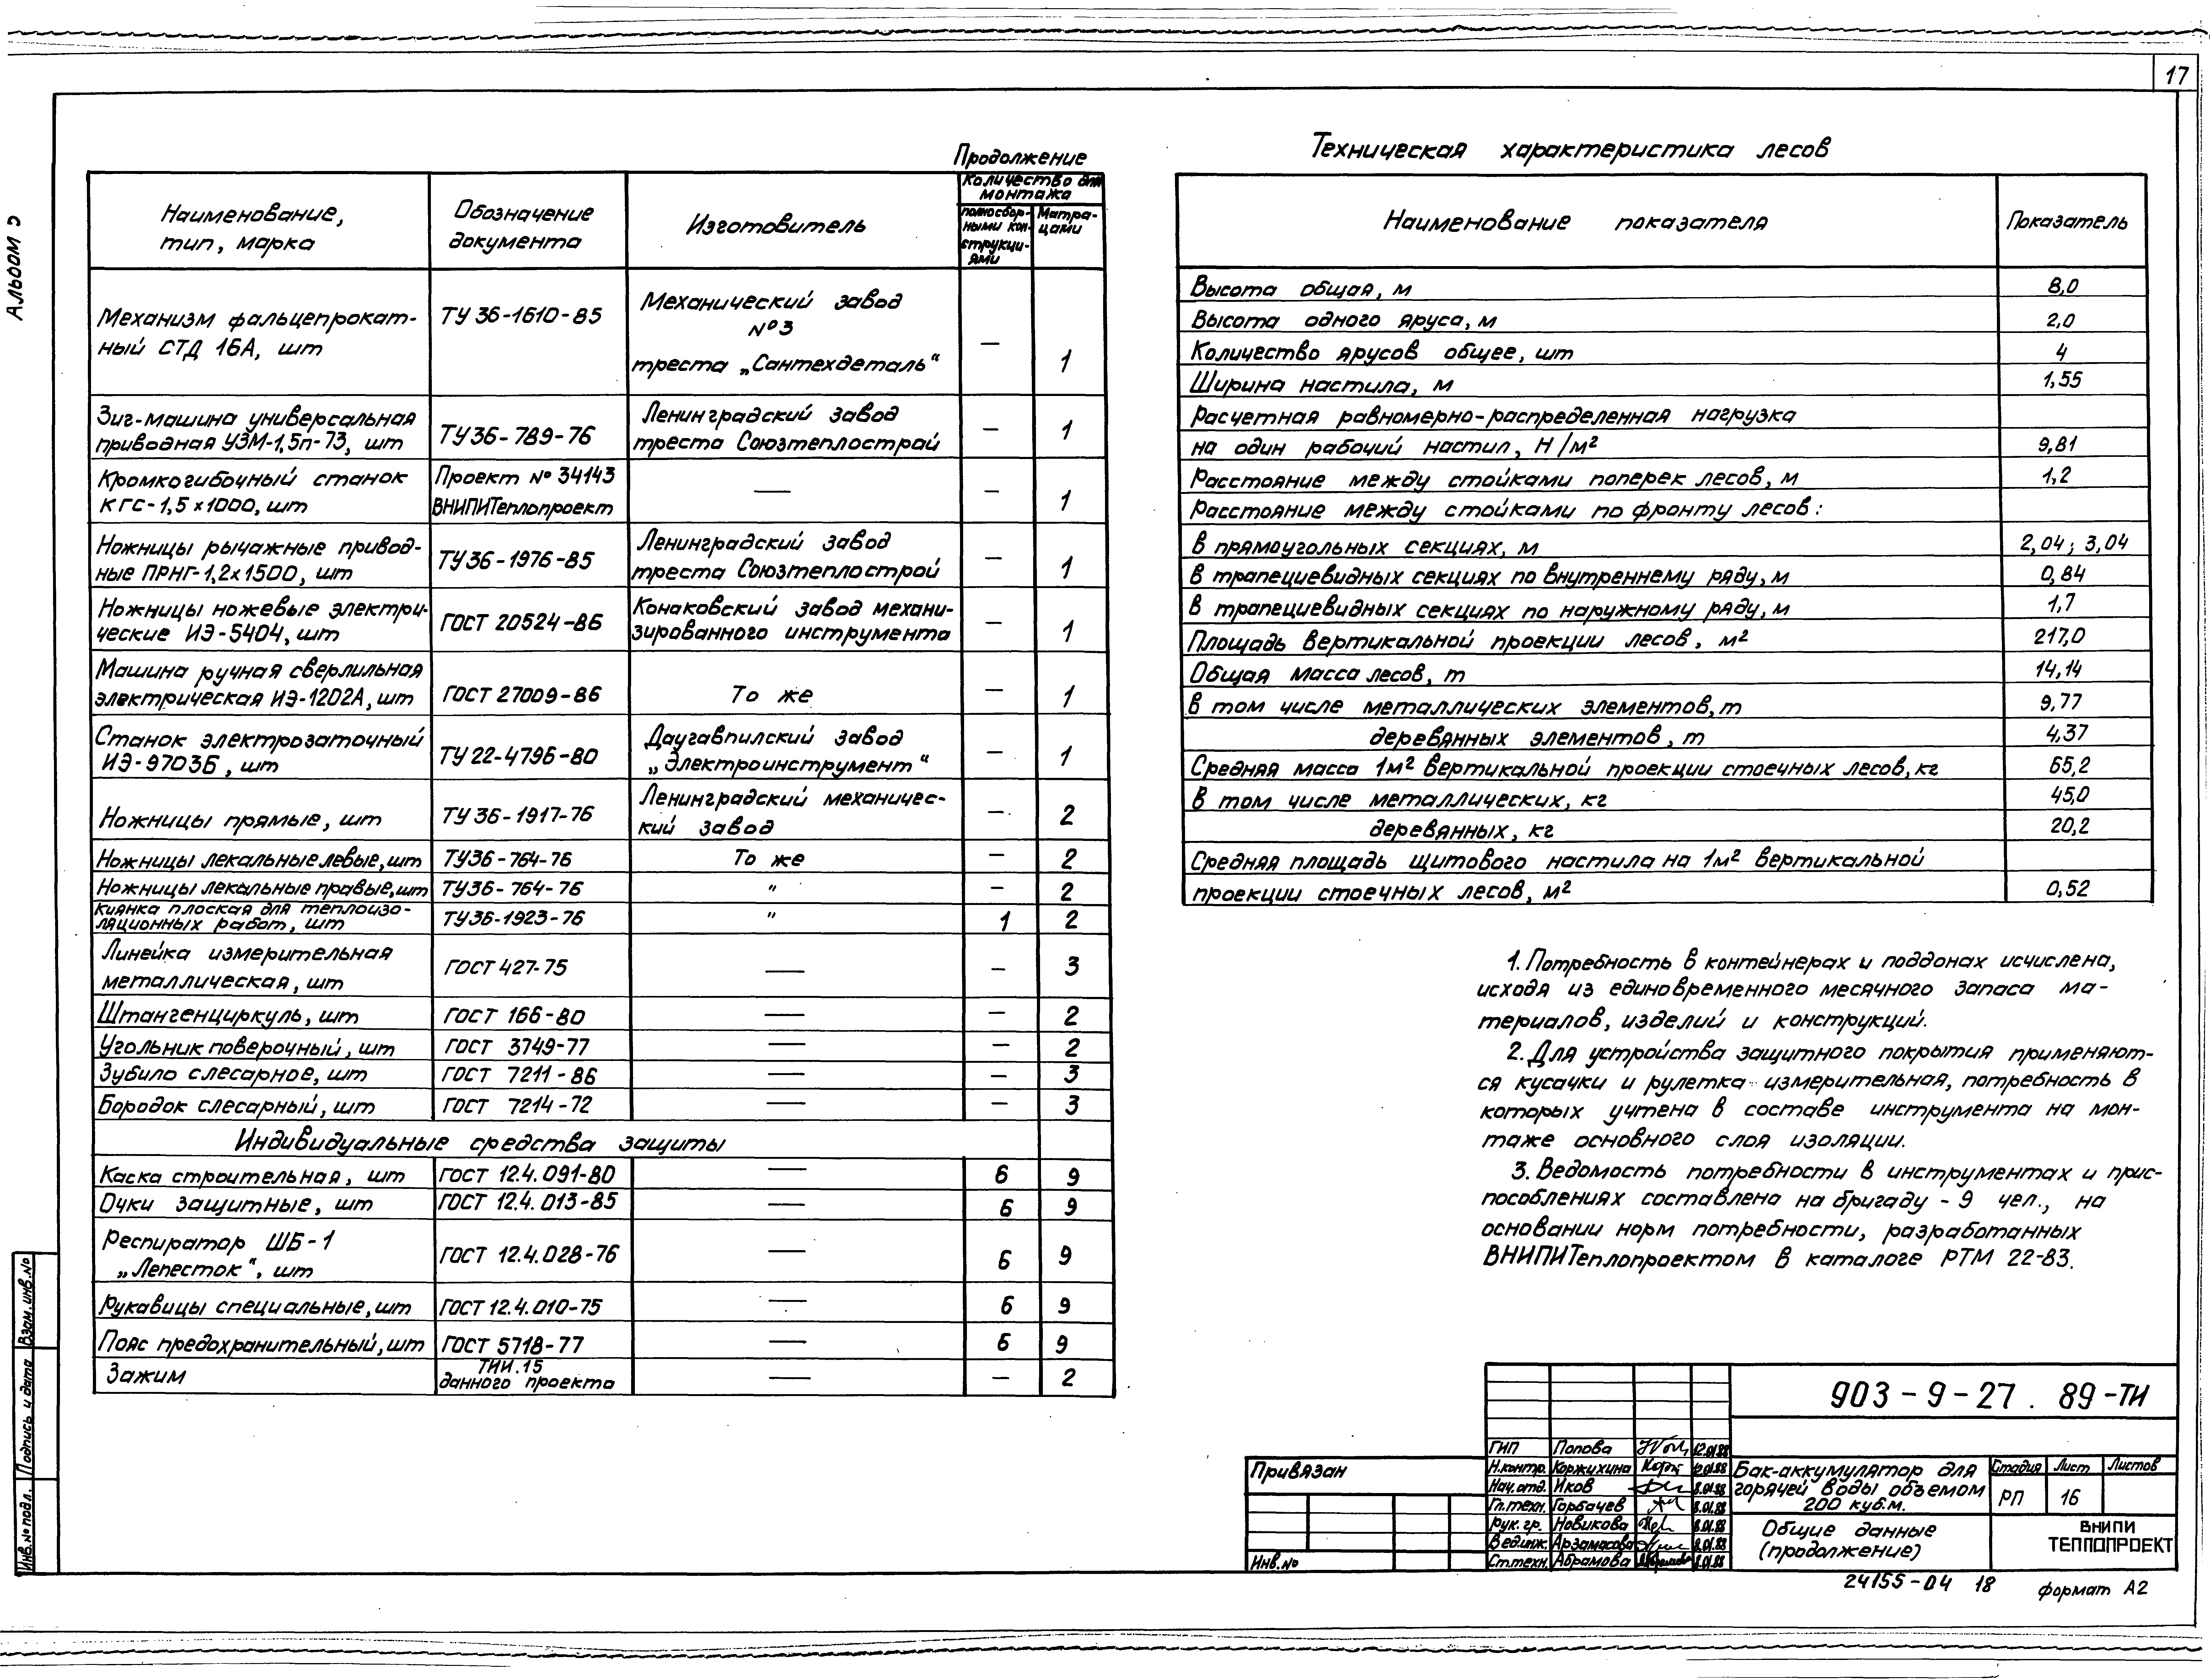 17
Альбом 5
Продолжение
Наименование, тип, марка
Обозначение документа
Изготовитель
Количество для монтажа
полносбор-
ными кон-
струкци-
ями
Матра-
цами
Механизм фальцепрокат-
ный СТД 16А, шт
ТУ 36-1610-85
Механический завод
№3
треста „Сантехдеталь“
—
1
Зиг-машина универсальная
приводная УЗМ-1,5п-73, шт
ТУ36-789-76
Ленинградский завод
треста Союзтеплострой
—
1
Кромкогибочный станок
КГС-1,5х1000, шт
Проект № 34143
ВНИПИТеплопроект
—
—
1
Ножницы рычажные привод-
ные ПРНГ-1,2х1500, шт
ТУ36-1976-85
Ленинградский завод
треста Союзтеплострой
—
1
Ножницы ножевые электри-
ческие ИЭ-5404, шт
ГОСТ 20524-86
Конаковский завод механи-
зированного инструмента
—
1
Машина ручная сверлильная
электрическая ИЭ-1202А, шт
ГОСТ 27009-86
То же
—
1
Станок электрозаточный
ИЭ-9703Б, шт
ТУ 22-4796-80
Даугавпилский завод
„Электроинструмент“
—
1
Ножницы прямые, шт
ТУ 36-1917-76
Ленинградский механичес-
кий завод
—
2
Ножницы лекальные левые, шт
ТУ36-764-76
То же
—
2
Ножницы лекальные правые, шт
ТУ36-764-76
"
—
2
Киянка плоская для теплоизо-
ляционных работ, шт
ТУ36-1923-76
"
1
2
Линейка измерительная
металлическая, шт
ГОСТ 427-75
—
—
3
Штангенциркуль, шт
ГОСТ 166-80
—
—
2
Угольник поверочный, шт
ГОСТ 3749-77
—
—
2
Зубило слесарное, шт
ГОСТ 7211-86
—
—
3
Бородок слесарный, шт
ГОСТ 7214-72
—
—
3
Индивидуальные средства защиты
Каска строительная, шт
ГОСТ 12.4.091-80
—
6
9
Очки защитные, шт
ГОСТ 12.4.013-85
—
6
9
Респиратор ШБ-1
„Лепесток“, шт
ГОСТ 12.4.028-76
—
6
9
Рукавицы специальные, шт
ГОСТ 12.4.010-75
—
6
9
Пояс предохранительный, шт
ГОСТ 5718-77
—
6
9
Зажим
ТИИ.15
данного проекта
—
—
2
Техническая характеристика лесов
Наименование показателя
Показатель
Высота общая, м
8,0
Высота одного яруса, м
2,0
Количество ярусов общее, шт
4
Ширина настила, м
1,55
Расчетная равномерно-распределенная нагрузка
на один рабочий настил, Н/м²
9,81
Расстояние между стойками поперек лесов, м
1,2
Расстояние между стойками по фронту лесов:
в прямоугольных секциях, м
2,04; 3,04
в трапециевидных секциях по внутреннему ряду, м
0,84
в трапециевидных секциях по наружному ряду, м
1,7
Площадь вертикальной проекции лесов, м²
217,0
Общая масса лесов, т
14,14
в том числе металлических элементов, т
9,77
деревянных элементов, т
4,37
Средняя масса 1м² вертикальной проекции стоечных лесов, кг
65,2
в том числе металлических, кг
45,0
деревянных, кг
20,2
Средняя площадь щитового настила на 1м² вертикальной
проекции стоечных лесов, м²
0,52
1. Потребность в контейнерах и поддонах исчислена,
исходя из единовременного месячного запаса ма-
териалов, изделий и конструкций.
2. Для устройства защитного покрытия применяют-
ся кусачки и рулетка измерительная, потребность в
которых учтена в составе инструмента на мон-
таже основного слоя изоляции.
3. Ведомость потребности в инструментах и прис-
пособлениях составлена на бригаду - 9 чел., на
основании норм потребности, разработанных
ВНИПИТеплопроектом в каталоге РТМ 22-83.
Инв.№ подл.
Подпись и дата
Взам. инв.№
Привязан
Инв.№
ГИП Попова 12.01.88
Н.контр. Коржихина 12.01.88
Нач.отд. Иков 8.01.88
Гл.техн. Горбачев 8.01.88
Рук.гр. Новикова 8.01.88
Вед.инж. Арзамасова 8.01.88
Ст.техн. Абрамова 8.01.88
903-9-27.89-ТИ
Бак-аккумулятор для
горячей воды объемом
200 куб.м.
Стадия
Лист
Листов
РП
16
Общие данные
(продолжение)
ВНИПИ
ТЕПЛОПРОЕКТ
24155-04 18
формат А2